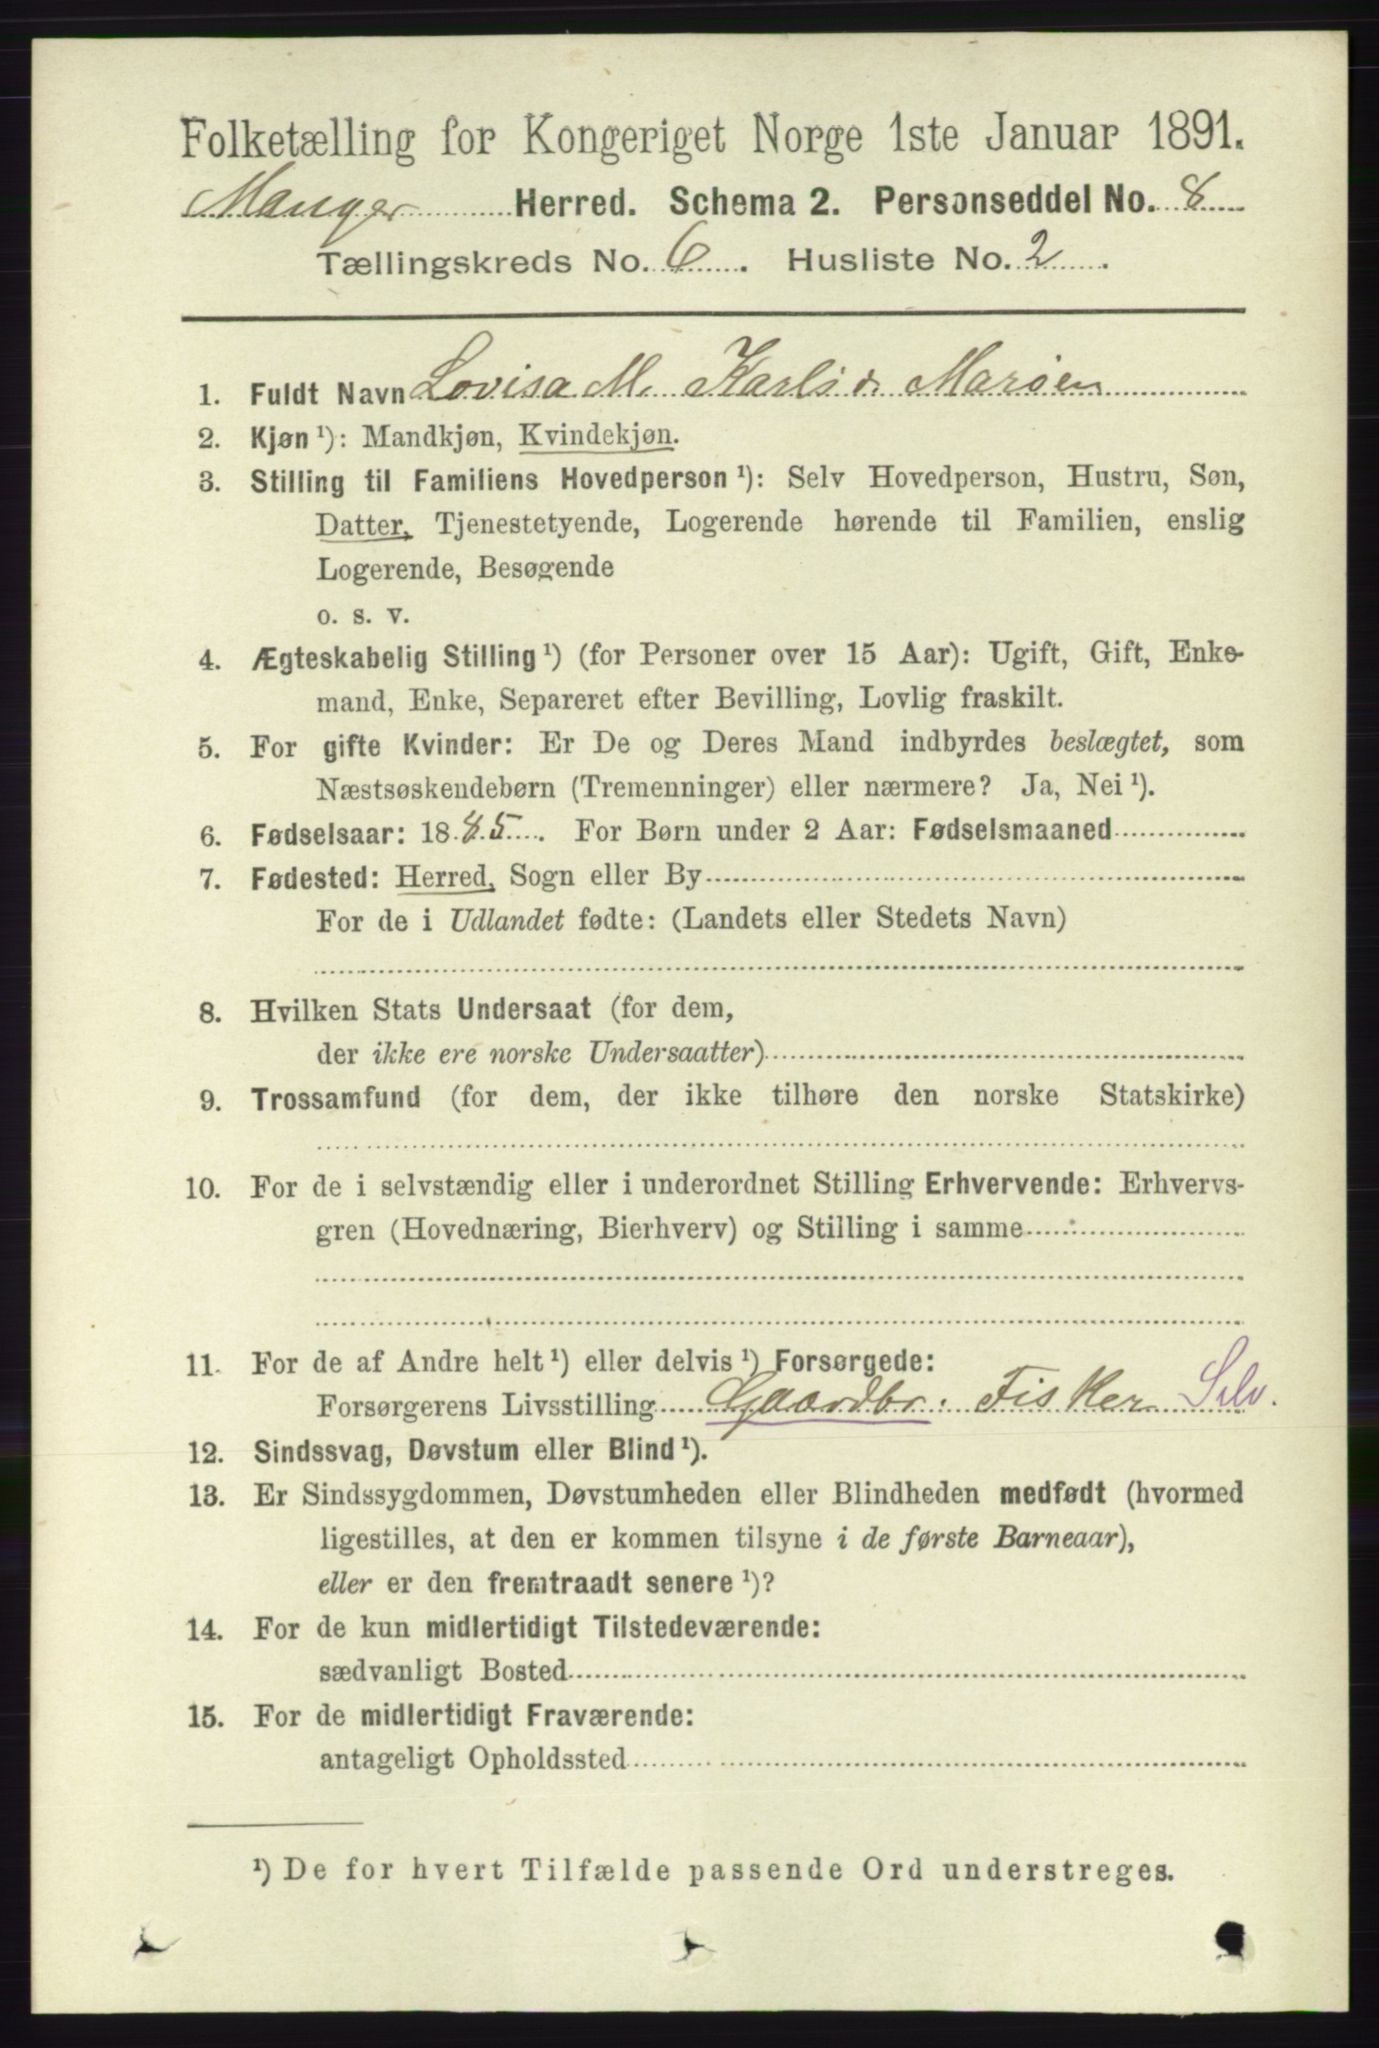 Folketælling for Kongeriget Norge 1ste Januar 1891.
Manger Herred. Schema 2. Personseddel No. 8
Tællingskreds No. 6. Husliste No. 2.
1. Fuldt Navn Lovisa M. Karlsd. Marøen
2. Kjøn ¹): Mandkjøn, Kvindekjøn.
3. Stilling til Familiens Hovedperson ¹): Selv Hovedperson, Hustru, Søn,
Datter, Tjenestetyende, Logerende hørende til Familien, enslig
Logerende, Besøgende
o. s. v.
4. Ægteskabelig Stilling ¹) (for Personer over 15 Aar): Ugift, Gift, Enke-
mand, Enke, Separeret efter Bevilling, Lovlig fraskilt.
5. For gifte Kvinder: Er De og Deres Mand indbyrdes beslægtet, som
Næstsøskendebørn (Tremenninger) eller nærmere? Ja, Nei ¹).
6. Fødselsaar: 1885. For Børn under 2 Aar: Fødselsmaaned
7. Fødested: Herred, Sogn eller By
For de i Udlandet fødte: (Landets eller Stedets Navn)
8. Hvilken Stats Undersaat (for dem,
der ikke ere norske Undersaatter)
9. Trossamfund (for dem, der ikke tilhøre den norske Statskirke)
10. For de i selvstændig eller i underordnet Stilling Erhvervende: Erhvervs-
gren (Hovednæring, Bierhverv) og Stilling i samme
11. For de af Andre helt ¹) eller delvis ¹) Forsørgede:
Forsørgerens Livsstilling Gaardbr. Fisker Selv.
12. Sindssvag, Døvstum eller Blind ¹).
13. Er Sindssygdommen, Døvstumheden eller Blindheden medfødt (hvormed
ligestilles, at den er kommen tilsyne i de første Barneaar),
eller er den fremtraadt senere ¹)?
14. For de kun midlertidigt Tilstedeværende:
sædvanligt Bosted
15. For de midlertidigt Fraværende:
antageligt Opholdssted
¹) De for hvert Tilfælde passende Ord understreges.